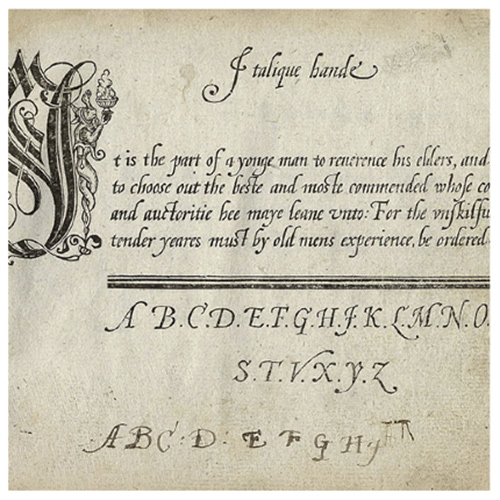 Italique hande
It is the part of a yonge man to reuerence his elders, and
to choose out the beste and moste commended whose co
and auctoritie hee maye leane vnto: For the vnskilfu
tender yeares must by old mens experience, be ordered
A.B.C.D.E.F.G.H.J.K.L.M.N.O.
S.T.V.X.y.Z
A B C : D . E F G H